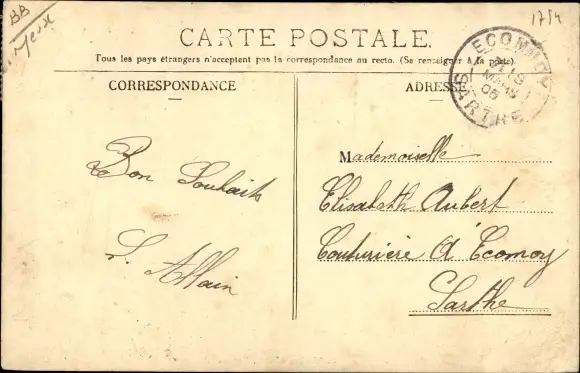 BB
1754
CARTE POSTALE.
Tous les pays étrangers n'acceptent pas la correspondance au recto. (Se renseigner à la poste).
CORRESPONDANCE
ADRESSE
ECOMMOY
MARS
05
SARTHE
Bon Souhaits
S. Allain
Mademoiselle
Elisabeth Aubert
Couturière à Ecomoy
Sarthe